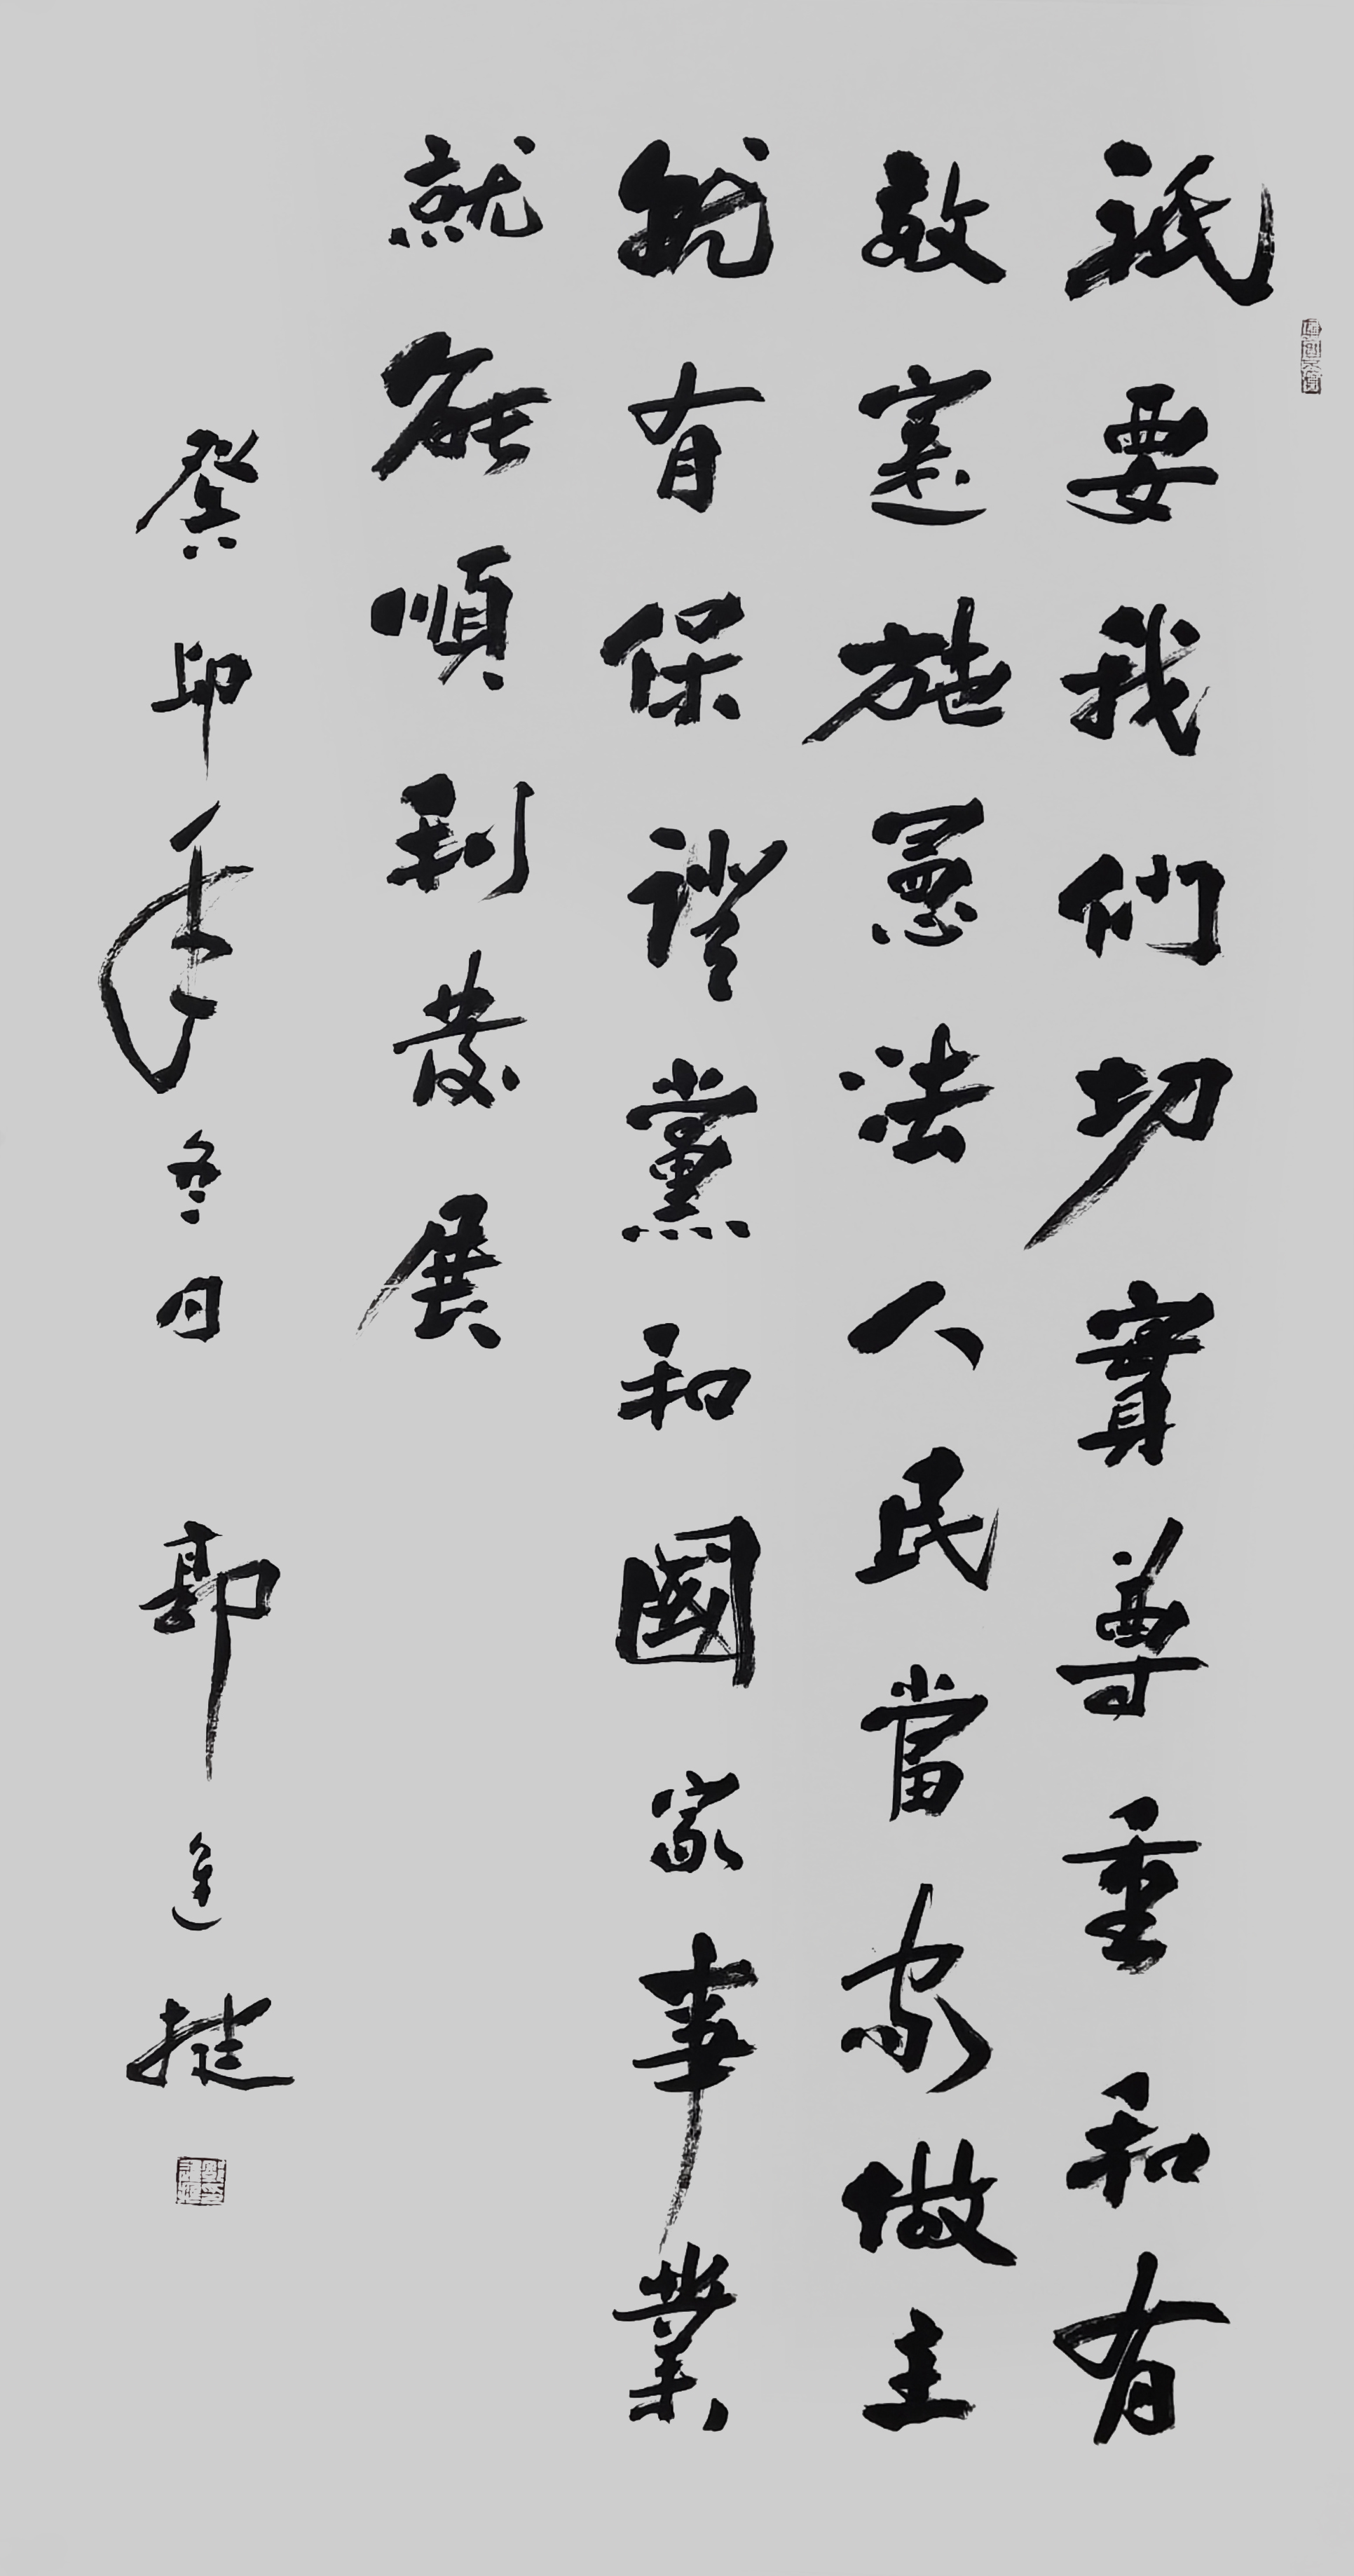 祇要我們切實尊重和有
效實施憲法人民當家做主
就有保證黨和國家事業
就能順利發展
癸卯年冬月 郭進拴